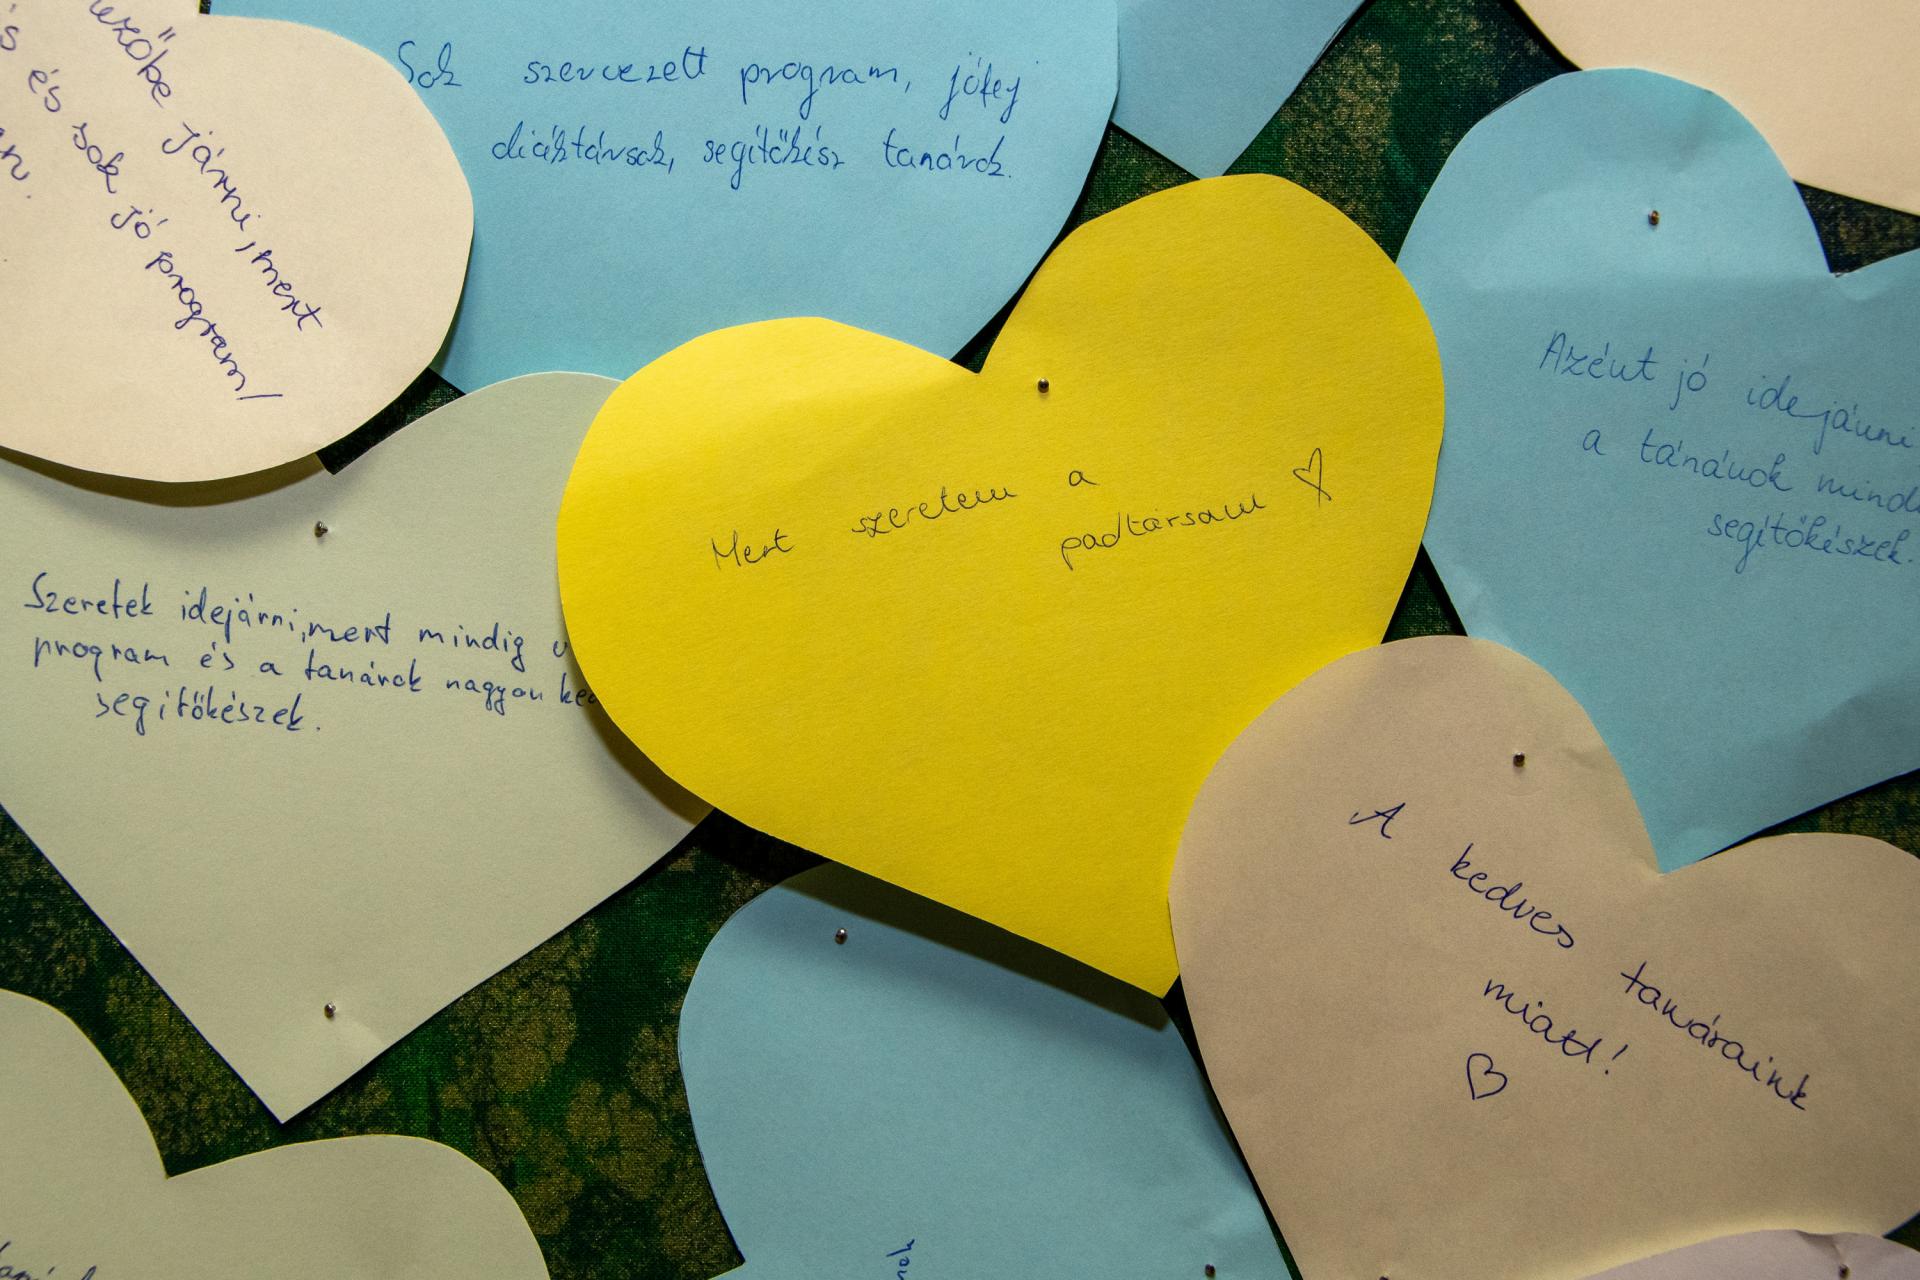 járni, mert
és sok jó program!
Sok szervezett program, jófej
diáktársak, segítőkész tanárok.
Mert szeretem a
padtársam ♡
Azért jó idejárni
a tánárok
segítőkészek.
Szeretek idejárni, mert mindig
program és a tanárok nagyon
segítőkészek.
A kedves tanáraink
miatt!
♡